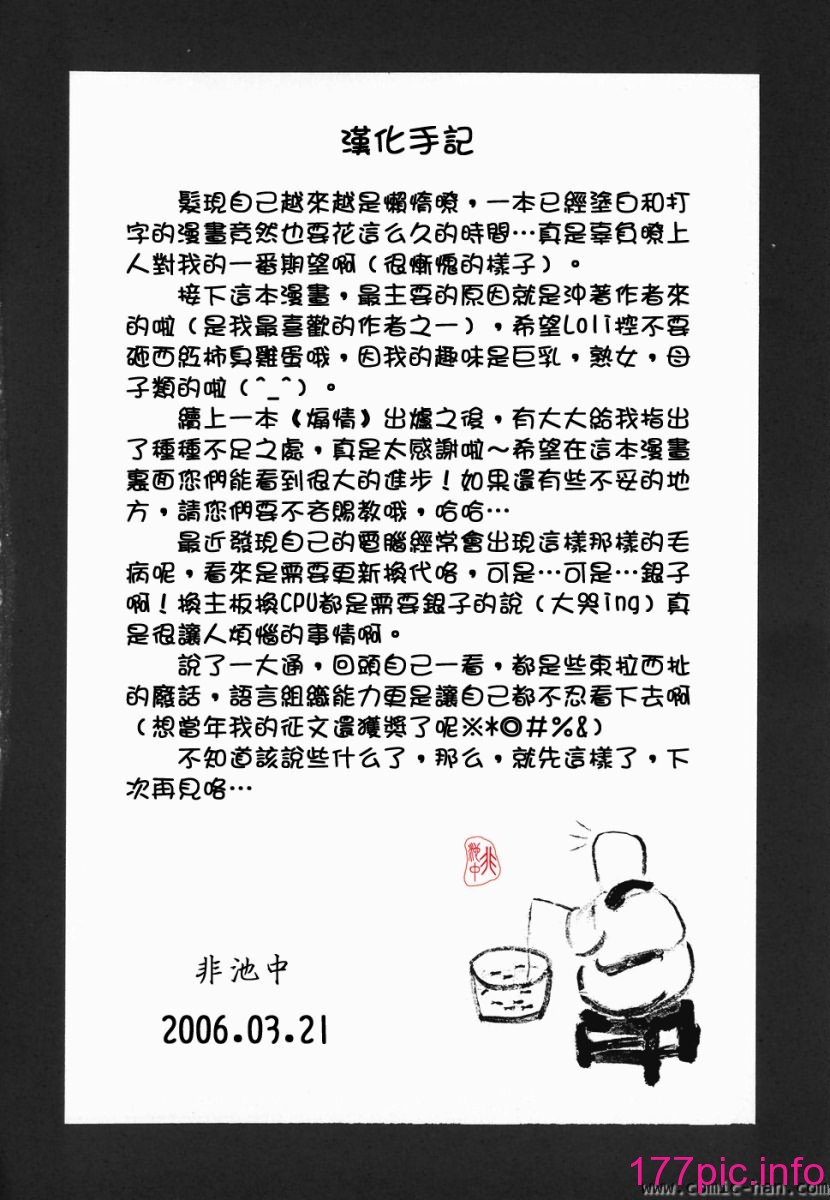 漢化手記
髮現自己越來越是懶惰瞭，一本已經塗白和打
字的漫畫竟然也要花這么久的時間…真是辜負瞭上
人對我的一番期望啊（很慚愧的樣子）。
接下這本漫畫，最主要的原因就是沖著作者來
的啦（是我最喜歡的作者之一），希望Loli控不要
砸西紅柿臭雞蛋哦，因我的趣味是巨乳，熟女，母
子類的啦（^_^）。
續上一本《煽情》出爐之後，有大大給我指出
了種種不足之處，真是太感謝啦～希望在這本漫畫
裏面您們能看到很大的進步！如果還有些不妥的地
方，請您們要不吝賜教哦，哈哈…
最近發現自己的電腦經常會出現這樣那樣的毛
病呢，看來是需要更新換代咯，可是…可是…銀子
啊！換主板換CPU都是需要銀子的說（大哭ing）真
是很讓人煩惱的事情啊。
說了一大通，回頭自己一看，都是些東拉西扯
的廢話，語言組織能力更是讓自己都不忍看下去啊
（想當年我的征文還獲獎了呢※*◎#%&）
不知道該說些什么了，那么，就先這樣了，下
次再見咯…
非池中
非池中
2006.03.21
177pic.info
www.comic-han.com